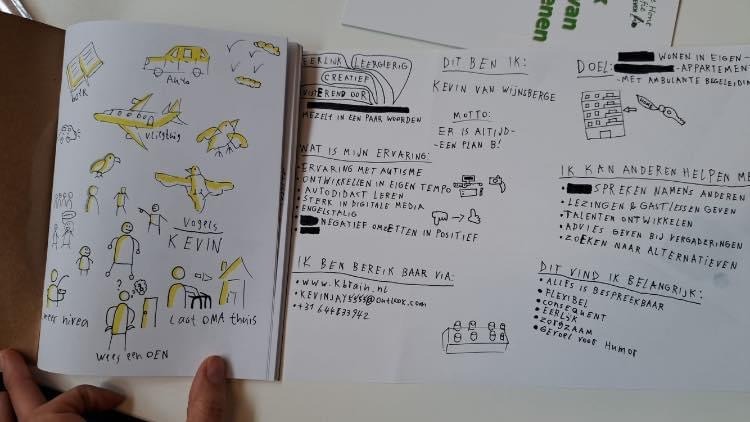 BOEK
Auto
Vliegtuig
Vogels
KEVIN
?
LAAT OMA thuis
wees een OEN
EERLIJK LEERGIERIG
CREATIEF
LUISTEREND OOR
MEZELF IN EEN PAAR WOORDEN
WAT IS MIJN ERVARING:
• ERVARING MET AUTISME
• ONTWIKKELEN IN EIGEN TEMPO
• AUTODIDACT LEREN
• STERK IN DIGITALE MEDIA
• ENGELSTALIG
NEGATIEF OMZETTEN IN POSITIEF
IK BEN BEREIKBAAR VIA:
• www.kbrain.nl
• KEVINJAY5555@outlook.com
DIT BEN IK:
KEVIN VAN WIJNSBERGE
MOTTO:
ER IS ALTIJD-
-EEN PLAN B!
DOEL:
WONEN IN EIGEN-
-APPARTEMENT
-MET AMBULANTE BEGELEIDING
IK KAN ANDEREN HELPEN ME
SPREKEN NAMENS ANDEREN
• LEZINGEN & GASTLESSEN GEVEN
• TALENTEN ONTWIKKELEN
• ADVIES GEVEN BIJ VERGADERINGEN
• ZOEKEN NAAR ALTERNATIEVEN
DIT VIND IK BELANGRIJK:
• ALLES IS BESPREEKBAAR
• FLEXIBEL
• consequent
• EERLIJK
• zorgzaam
• Gevoel voor Humor
van
enen